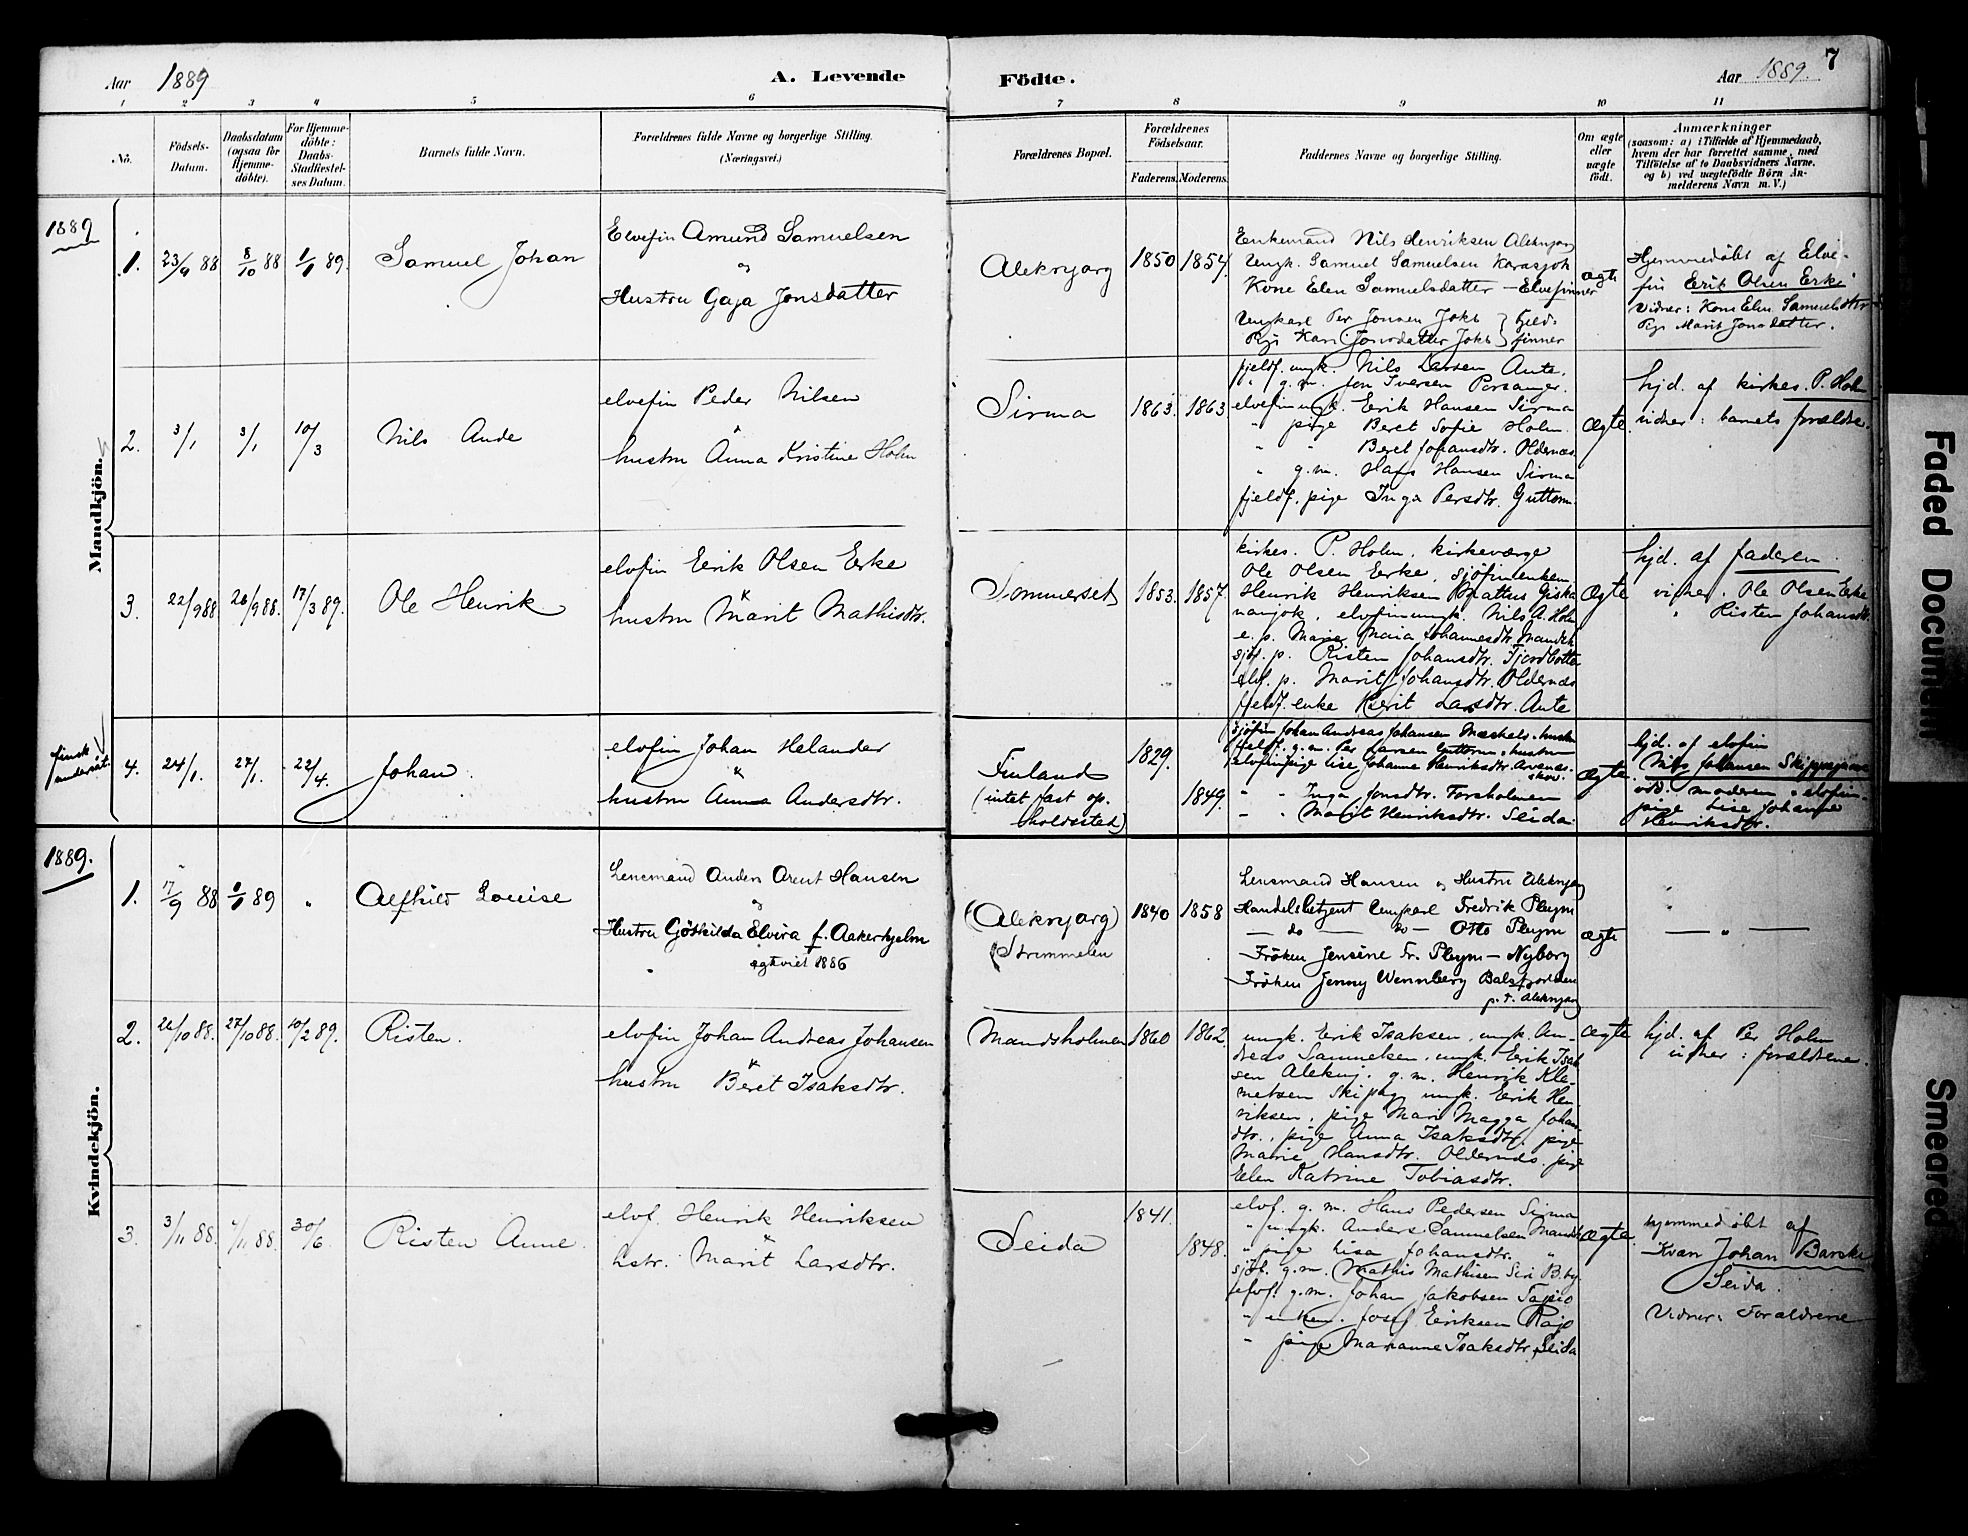 7
Aar 1889
A. Levende
Födte.
Aar 1889.
1 2 3 4 5 6 7 8 9 10 11
No.
Födsels-
Datum.
Daabsdatum
(ogsaa for
Hjemme-
döbte).
For Hjemme-
döbte:
Daabs-
Stadfæstel-
ses Datum.
Barnets fulde Navn.
Forældrenes fulde Navne og borgerlige Stilling.
(Næringsvei.)
Forældrenes Bopæl.
Forældrenes
Födselsaar.
Faderens. Moderens.
Faddernes Navne og borgerlige Stilling.
Om ægte
eller
uægte
födt.
Anmærkninger
(saasom: a) i Tilfælde af Hjemmedaab,
hvem der har forrettet samme, med
Tilföielse af to Daabsvidners Navne,
og b) ved uægtefödte Börn An-
melderens Navn m. V.)
1889
Mandkjön.
1. 23/9 88 8/10 88 1/1 89.
Samuel Johan
Elvefin Amund Samuelsen
og
Hustru Gaja Jonsdatter
Aleknjarg
1850 1854.
Enkemand Nils Henriksen Aleknjarg
Ungk. Samuel Samuelsen Karasjok
Kone Elen Samuelsdatter - Elvefinner
Ungkarl Per Jonsen Joks } Fjeld-
Pge Kari Jonsdatter Joks } finner
ægte
Hjemmedöbt af Elve-
fin Erik Olsen Erke
Vidner: Kone Elen Samuelsdtr
Pge Marit Jonsdatter.
2. 3/1 3/1 10/3
Nils Ande
elvefin Peder Nilsen
"
hustru Anna Kristine Holm
Sirma
1863. 1863
fjeldf. ungk. Nils Larsen Ante.
" g.m. Jon Iversen Porsanger.
elvefin ungk. Erik Hansen Sirma
" pige Beret Sofie Holm
" " Beret Johansdtr. Oldernæs
" g.m. Hans Hansen Sirma
fjeldf. pige Inga Persdtr. Guttorm.
Ægte
hjd. af kirkes. P. Holm
vidner: barnets forældre.
3. 22/9 88 26/9 88. 17/3 89.
Ole Henrik
elvfin Erik Olsen Erke
&
hustru Marit Mathisdtr.
Sommerset
1853. 1857.
kirkes. P. Holm, kirkeværge
Ole Olsen Erke, sjöfin enkem.
Henrik Henriksen Mattus Giska
nanjok, elvefin ungk. Nils A. Holm
e. p. Maria Johannesdtr. Mandsh
sjöf. p. Risten Johansdtr. Fjordbotten
elvf. p. Marit Johansdtr. Oldernæs
fjeldf. enke Kierit Larsdtr. Ante
Ægte
hjd. af faderen
vidner. Ole Olsen Erke
" Risten Johansdtr.
finsk
undersåt.
4. 24/1. 27/1. 22/4.
Johan.
elvfin Johan Helander
&
hustru Anna Andersdtr.
Finland
(intet fast op-
holdssted)
1829.
1849.
sjöfin Johan Andreas Johansen & hustru
fjeldf. g. m. Per Larsen Guttorm & hustru
elvfinpige Lise Johanne Henriksdtr.
" " Inga Jonsdtr. Forsholmen
" " Marit Henriksdtr. Seida.
Ægte
hjd. af elvfin
Nils Johansen Skipagurra
vidn. moderen & elvfin-
pige Lise Johanne
Henriksdtr.
1889.
Kvindekjön.
1. 17/9 88 1/1 89 "
Alfhild Louise
Lensmand Anders Arent Hansen
og
Hustru Götkilda Elvira f. Aakerhjelm
ægteviet 1886
(Aleknjarg)
Strimmelen
1840 1858
Lensmand Hansen og Hustru Aleknjarg
Handelsbetjent Ungkarl Fredrik Pleym
— do — do — Otto Pleym
Fröken Jensine Fr. Pleym - Nyborg
Fröken Jenny Wennberg Balsfjorden
p. t. Aleknjarg
ægte
— " —
2. 26/10 88. 27/10 88. 10/2 89.
Risten.
elvfin Johan Andreas Johansen
&
hustru Beret Isaksdtr.
Mandsholmen
1860 1862.
ungk. Erik Isaksen, ungk. An-
dreas Samuelsen, ungk. Erik Isak-
sen Aleknj. g. m. Henrik Kle-
metsen Skipag. ungk. Erik Hen-
riksen, pige Mari Magga Johan
dtr., pige Anna Isaksdtr. pige
Marie Hansdtr. Oldernæs. pige
Elen Katrine Tobiasdtr.
Ægte
hjd. af Per Holm
vidner: forældrene.
3. 3/11 88. 7/11 88. 30/6
Risten Anne.
elvf. Henrik Henriksen
&
hstr. Marit Larsdtr.
Seida
1841.
1848.
elvf. g. m. Hans Pedersen Sirma
" ungk. Anders Samuelsen Mandsh
" pige Lisa Johansdtr. "
sjöf. g.m. Mathis Mathisen Siri B.by.
elvf. g.m. Johan Jakobsen Tapio
" enkem. Josef Eriksen Rajo
" pige Marianne Isaksdtr. Seida
Ægte.
hjemmedöbt af
Kvæn Johan Barski
Seida.
Vidner: Forældrene
Faded Document
Smeared